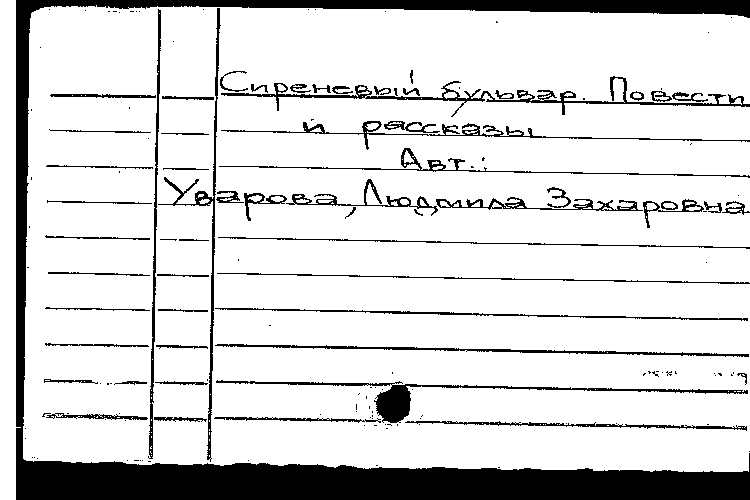 Сиреневый бульвар. Повести
и рассказы
Авт.:
Уварова, Людмила Захаровна